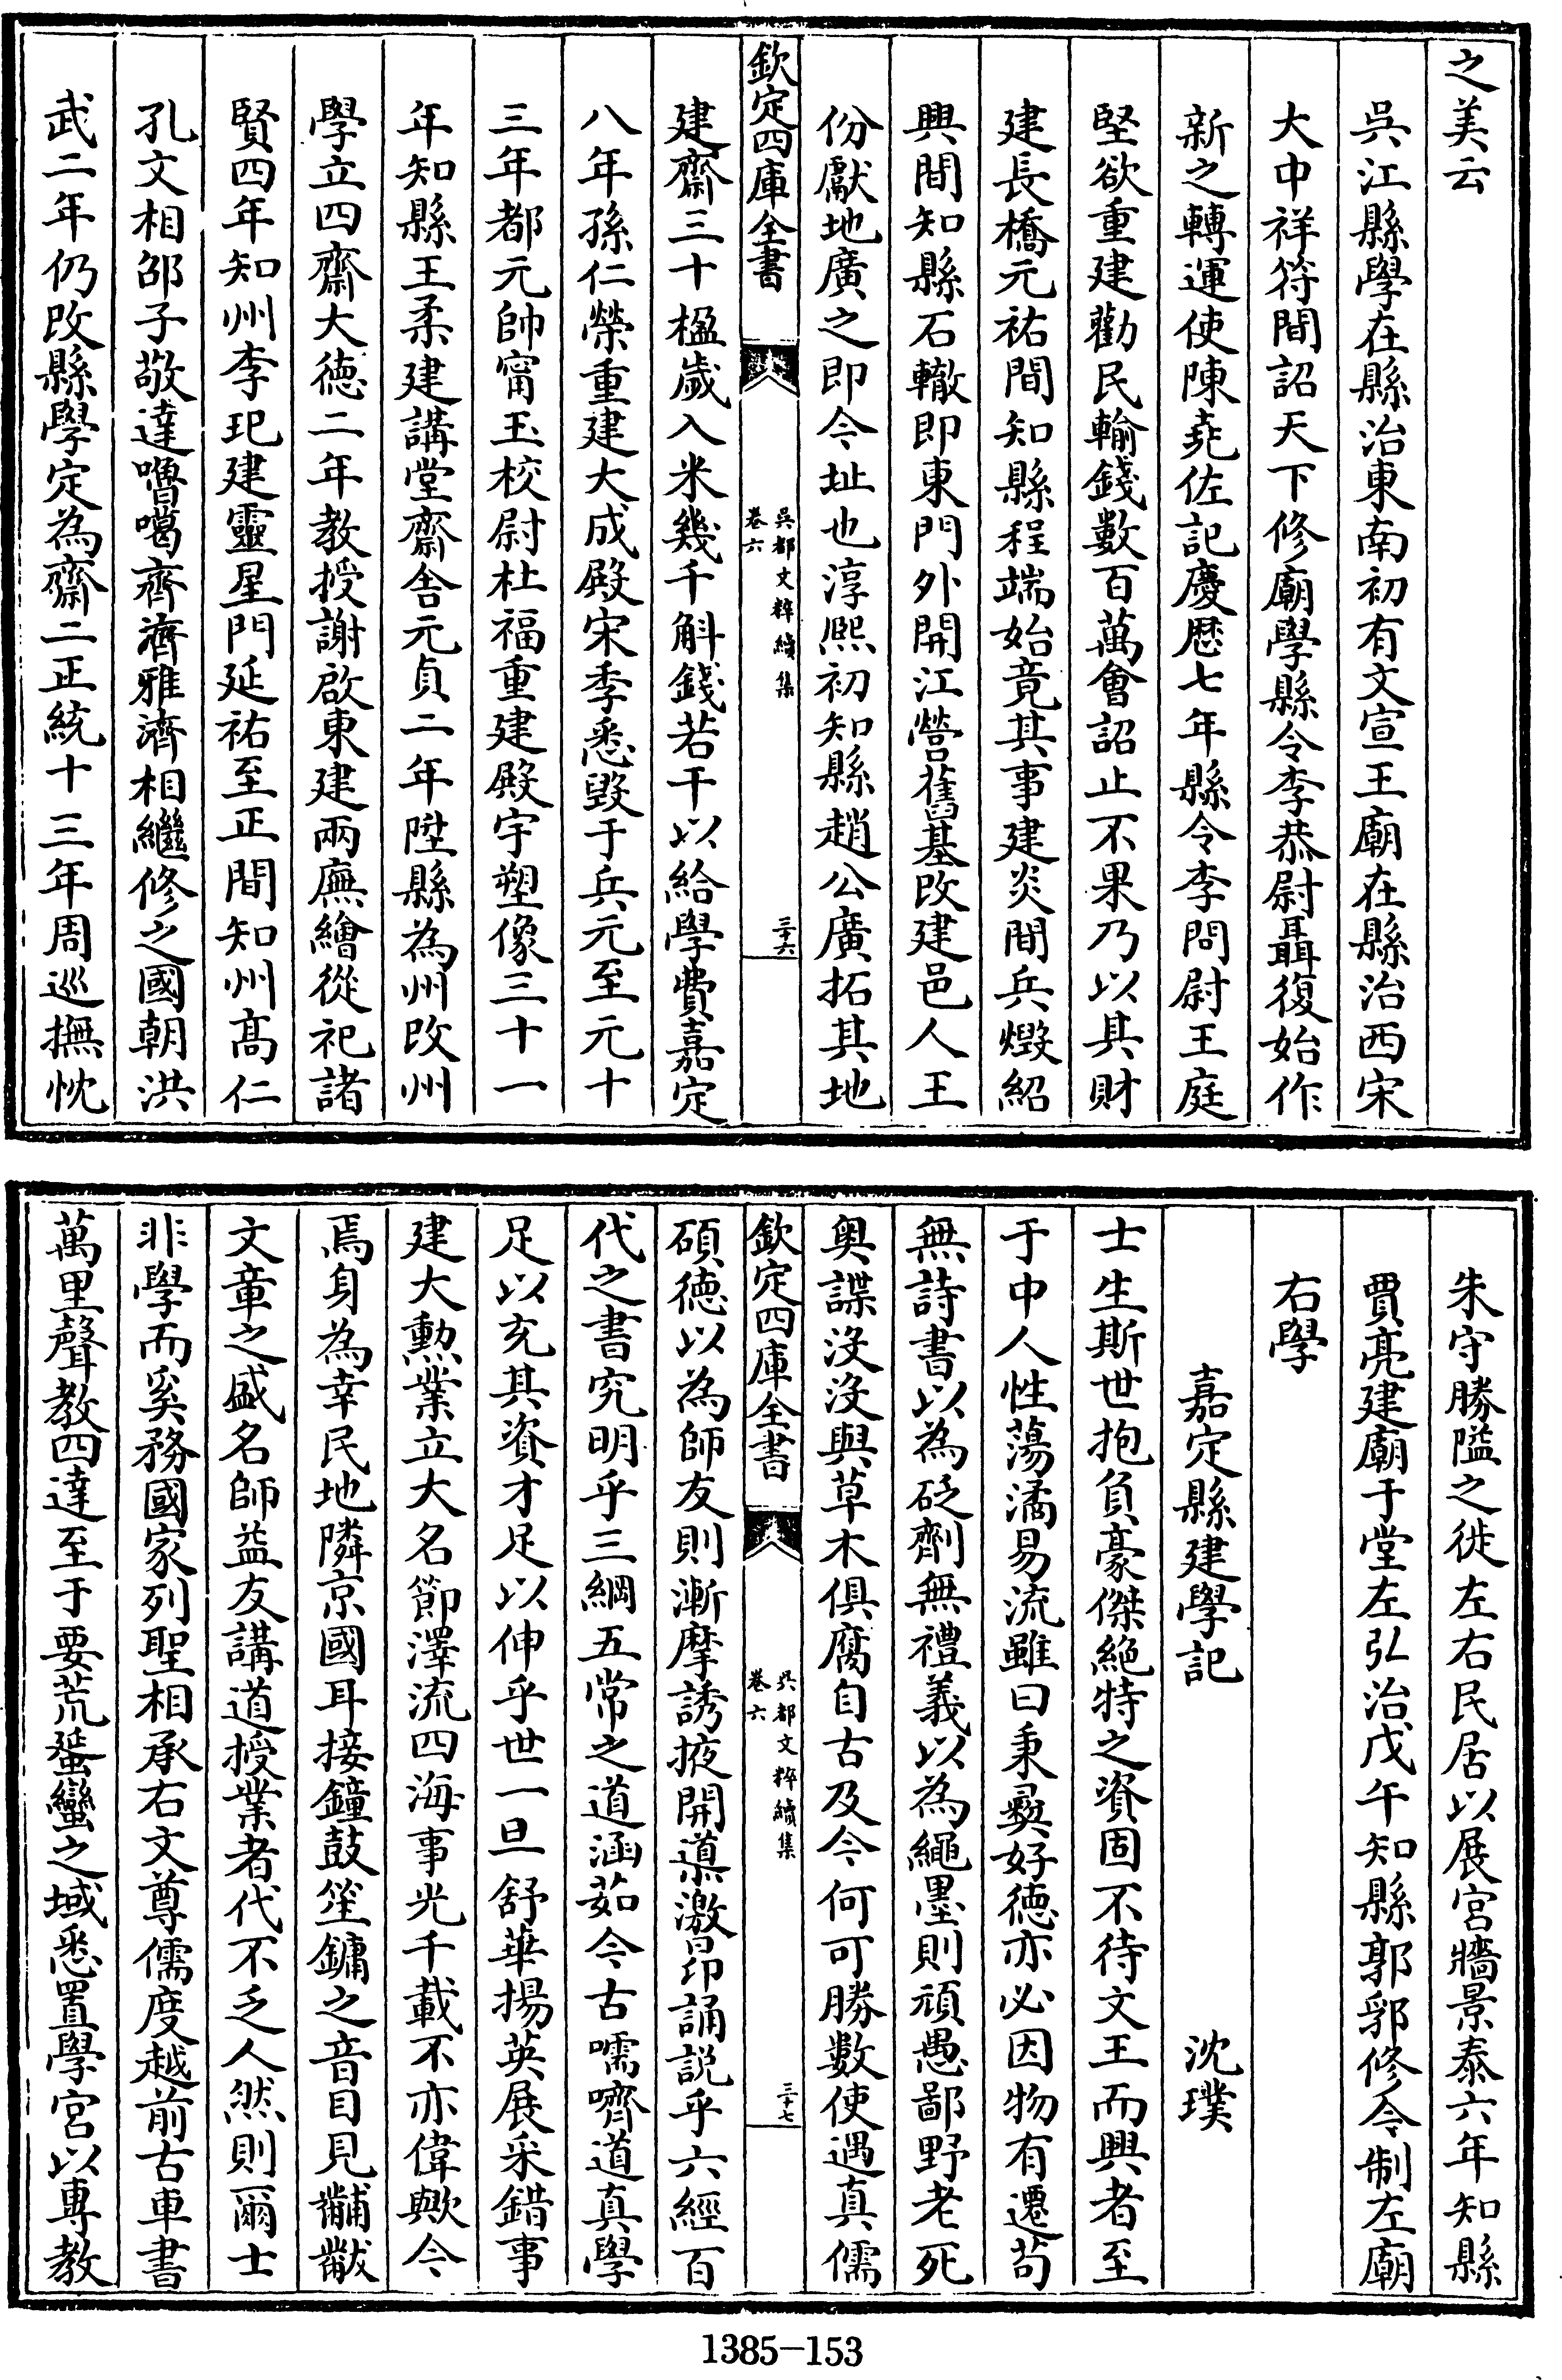 之美云
吳江縣學在縣治東南初有文宣王廟在縣治西宋
大中祥符間詔天下修廟學縣令李恭尉聶復始作
新之轉運使陳堯佐記慶厯七年縣令李問尉王庭
堅欲重建勸民輸錢數百萬會詔止不果乃以其財
建長橋元祐間知縣程端始竟其事建炎間兵燬紹
興間知縣石轍即東門外開江營舊基改建邑人王
份獻地廣之即今址也淳熙初知縣趙公廣拓其地
欽定四庫全書
吳都文粹續集
卷六
三十六
建齋三十楹歲入米幾千斛錢若干以給學費嘉定
八年孫仁榮重建大成殿宋季悉毀于兵元至元十
三年都元帥甯玉校尉杜福重建殿宇塑像三十一
年知縣王柔建講堂齋舍元貞二年陞縣為州改州
學立四齋大徳二年教授謝啟東建兩廡繪從祀諸
賢四年知州李玘建靈星門延祐至正間知州髙仁
孔文相邵子敬達嚕噶齊濟雅濟相繼修之國朝洪
武二年仍改縣學定為齋二正統十三年周巡撫忱
朱守勝隘之徙左右民居以展宮牆景泰六年知縣
賈亮建廟于堂左弘治戊午知縣郭郛修令制左廟
右學
嘉定縣建學記 沈璞
士生斯世抱負豪傑絕特之資固不待文王而興者至
于中人性蕩潏易流雖曰秉彛好德亦必因物有遷茍
無詩書以為砭劑無禮義以為繩墨則頑愚鄙野老死
奥諜沒沒與草木俱腐自古及今何可勝數使遇真儒
欽定四庫全書
吳都文粹續集
卷六
三十七
碩德以為師友則漸摩誘掖開導激昂誦説乎六經百
代之書究明乎三綱五常之道涵茹今古嚅嚌道真學
足以充其資才足以伸乎世一旦舒華揚英展采錯事
建大勲業立大名節澤流四海事光千載不亦偉歟今
焉身為幸民地隣京國耳接鐘鼓笙鏞之音目見黼黻
文章之盛名師益友講道授業者代不乏人然則爾士
非學而奚務國家列聖相承右文尊儒度越前古車書
萬里聲教四達至于要荒蜑蠻之域悉置學宮以專教
1385-153